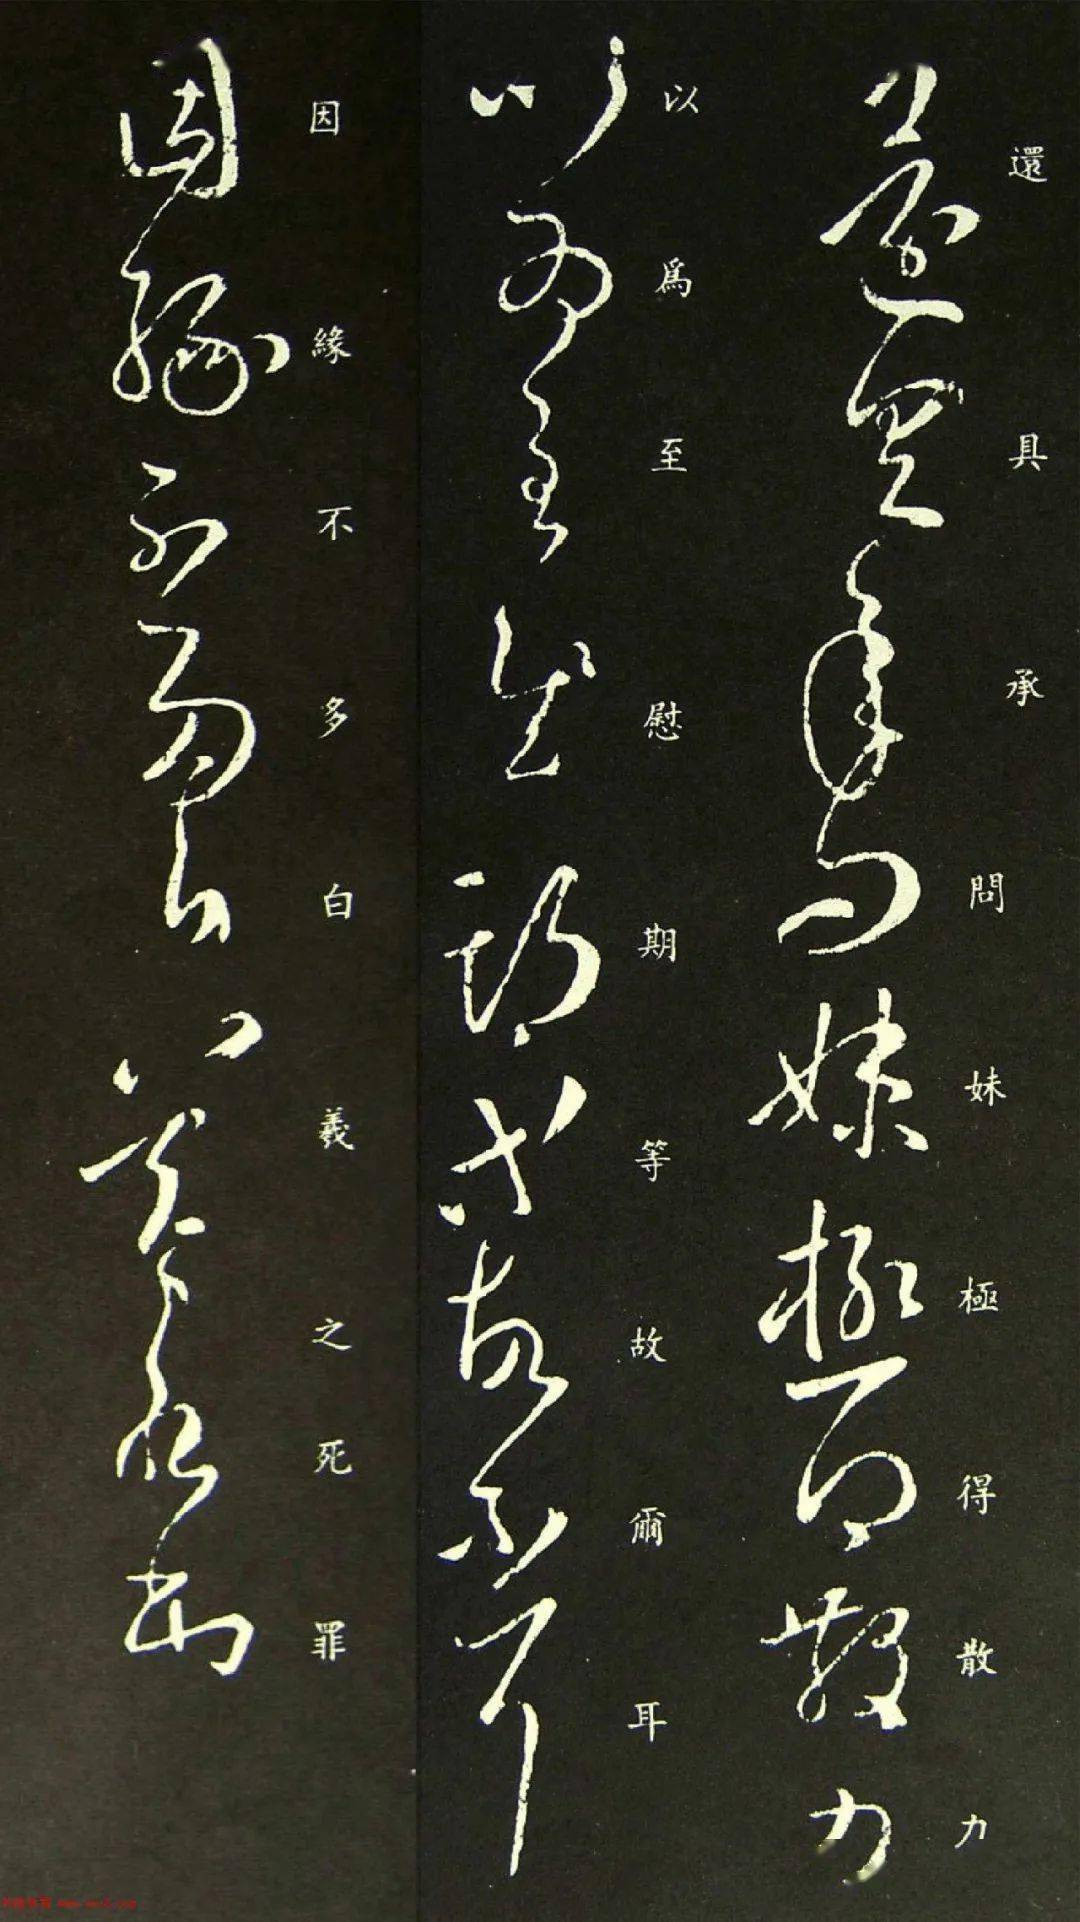 還具承問妹極得散力
以爲至慰期等故爾耳
因緣不多白羲之死罪